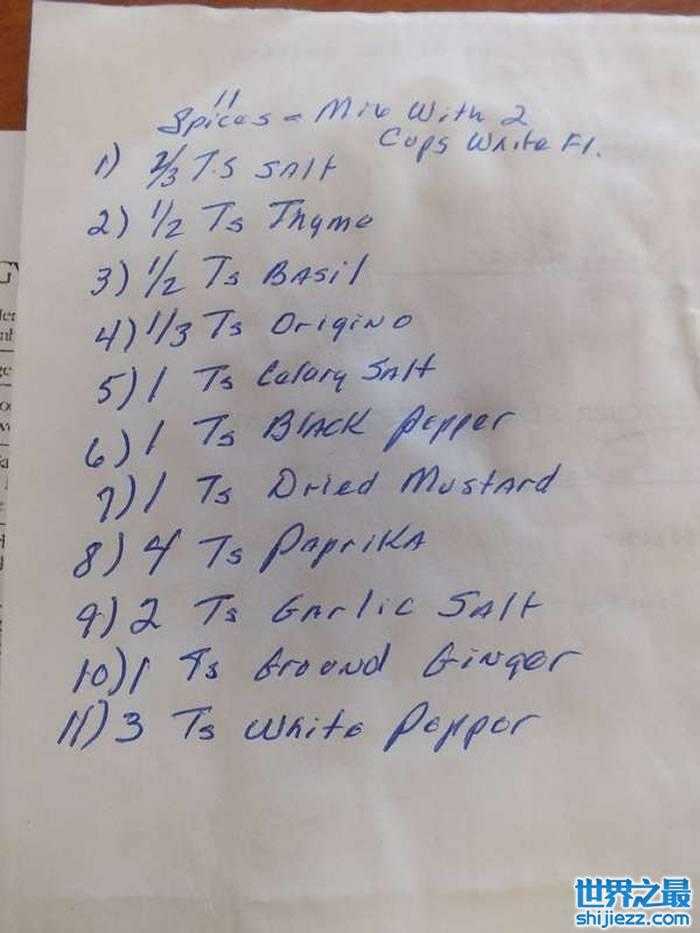 11
Spices - Mix With 2
Cups White Fl.
1) 2/3 T.S SAlt
2) 1/2 Ts Thyme
3) 1/2 Ts BAsil
4) 1/3 Ts Origino
5) 1 Ts Celary SAlt
6) 1 Ts BlACK Pepper
7) 1 Ts Dried MustArd
8) 4 Ts PAprikA
9) 2 Ts GArlic SAlt
10) 1 Ts Ground Ginger
11) 3 Ts White Pepper
世界之最
shijiezz.com